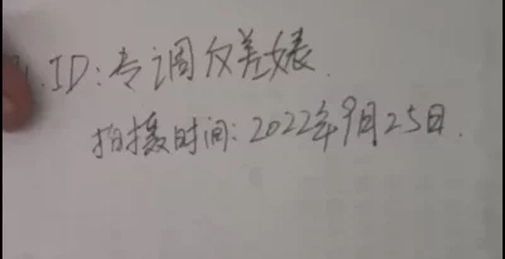 ID:专调反差婊.
拍摄时间:2022年9月25日.